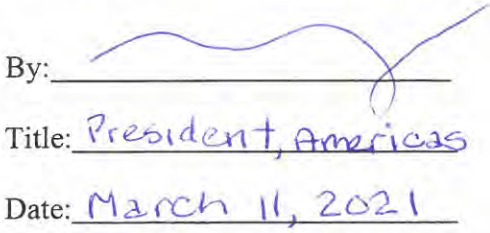 By:
Title: President, Americas
Date: March 11, 2021